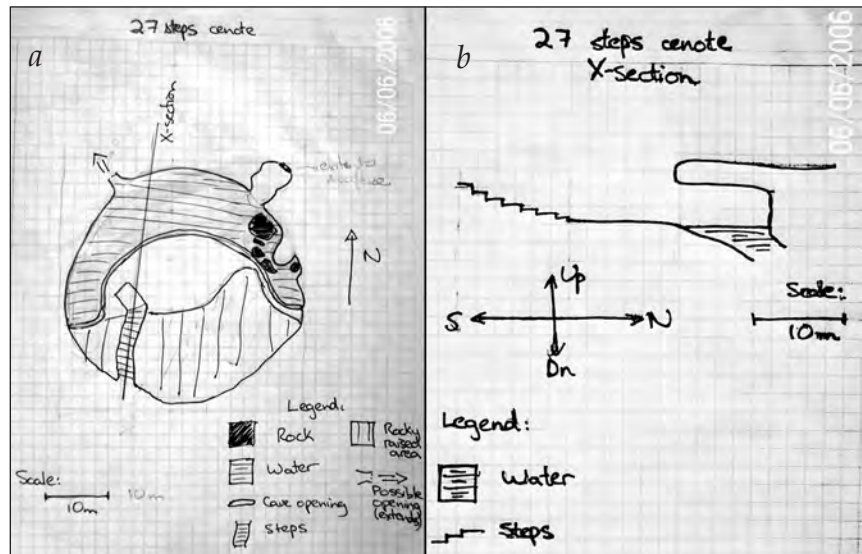 27 steps cenote
a
06/06/2006
X-section
N
Legend:
Rock
Rocky
raised
area
Water
Possible
opening
(extends)
Cave opening
Steps
Scale:
10m
10m
27 steps cenote
X-section
b
06/06/2006
Up
S
N
Dn
Scale:
10m
Legend:
Water
Steps